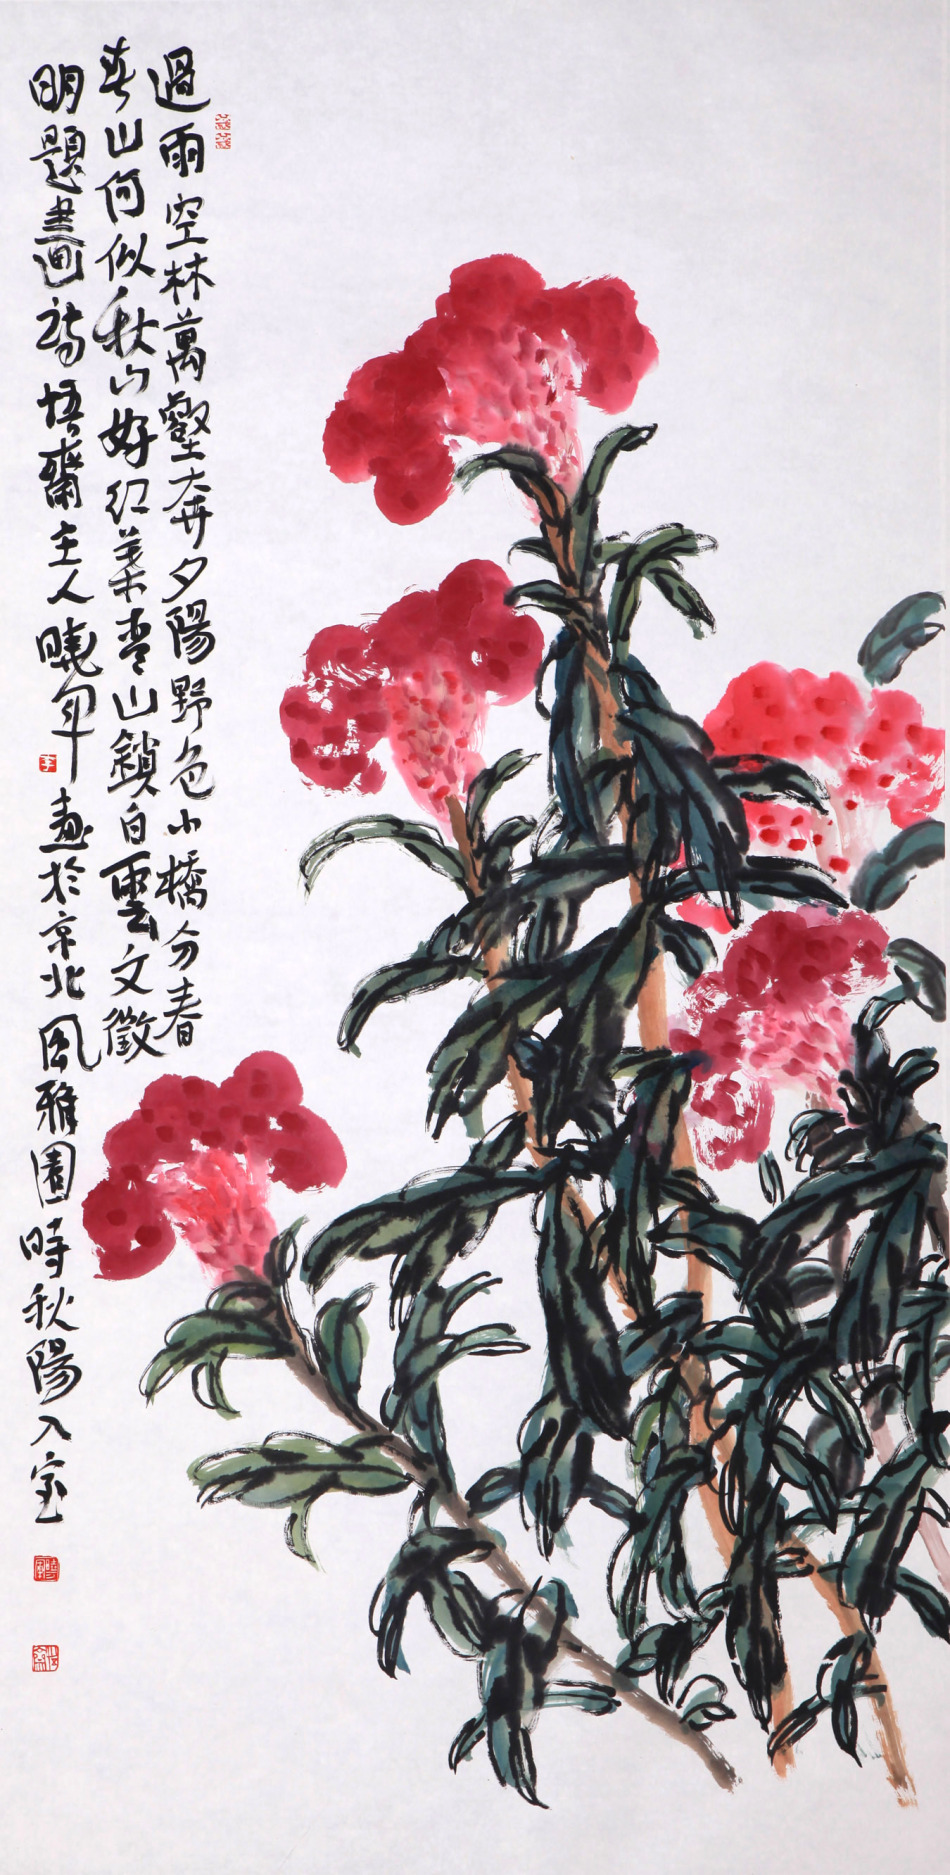 過雨空林萬壑奔夕陽野色小橋分春
春山何似秋山好红葉青山鎖白雲文徵
明題畫画詩悟齋主人曉军畫於京北风雅園時秋陽入室